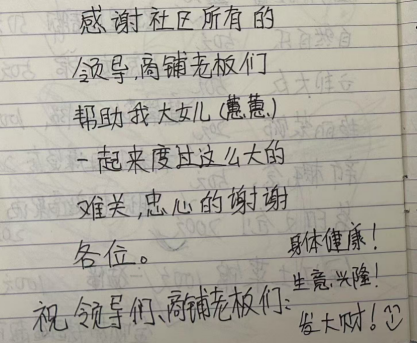 感谢社区所有的
领导,商铺老板们
帮助我大女儿(蕙蕙)
一起来度过这么大的
难关,忠心的谢谢
各位。
祝领导们、商铺老板们:
身体健康!
生意兴隆!
发大财!